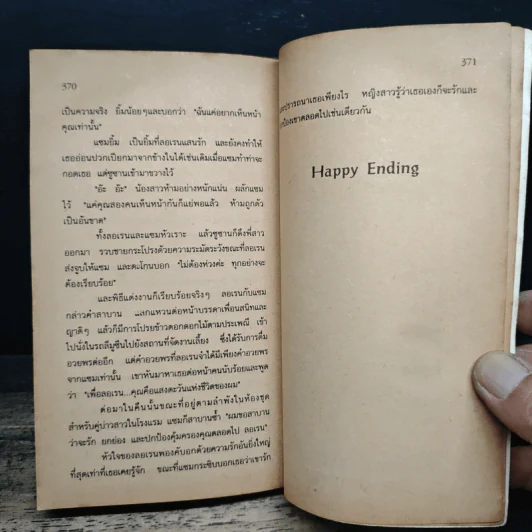 370
เป็นความจริง ยิ้มน้อยๆและบอกว่า "ฉันแค่อยากเห็นหน้า
คุณเท่านั้น"
แซมยิ้ม เป็นยิ้มที่ลอเรนแสนรัก และยังคงทำให้
เธออ่อนปวกเปียกมาจากข้างในได้เช่นเดิมเมื่อแซมทำท่าจะ
กอดเธอ แต่ซูซานเข้ามาขวางไว้
"อ๊ะ อ๊ะ" น้องสาวห้ามอย่างหนักแน่น ผลักแซม
ไว้ "แค่คุณสองคนเห็นหน้ากันก็แย่พอแล้ว ห้ามถูกตัว
เป็นอันขาด"
ทั้งลอเรนและแซมหัวเราะ แล้วซูซานก็ดึงพี่สาว
ออกมา รวบชายกระโปรงด้วยความระมัดระวังขณะที่ลอเรน
ส่งจูบให้แซม และตะโกนบอก "ไม่ต้องห่วงค่ะ ทุกอย่างจะ
ต้องเรียบร้อย"
และพิธีแต่งงานก็เรียบร้อยจริงๆ ลอเรนกับแซม
กล่าวคำสาบาน แลกแหวนต่อหน้าบรรดาเพื่อนสนิทและ
ญาติๆ แล้วก็มีการโปรยข้าวตอกดอกไม้ตามประเพณี เข้า
ไปนั่งในรถลีมูซีนไปยังสถานที่จัดงานเลี้ยง ซึ่งได้รับการดื่ม
อวยพรต่ออีก แต่คำอวยพรที่ลอเรนจำได้มีเพียงคำอวยพร
จากแซมเท่านั้น เขาหันมาหาเธอต่อหน้าคนนับร้อยและพูด
ว่า "เพื่อลอเรน...คุณคือแสงตะวันแห่งชีวิตของผม"
ต่อมาในคืนนั้นขณะที่อยู่ตามลำพังในห้องชุด
สำหรับคู่บ่าวสาวในโรงแรม แซมก็สาบานซ้ำ "ผมขอสาบาน
ว่าจะรัก ยกย่อง และปกป้องคุ้มครองคุณตลอดไป ลอเรน"
หัวใจของลอเรนพองคับอกด้วยความรักอันยิ่งใหญ่
ที่สุดเท่าที่เธอเคยรู้จัก ขณะที่แซมกระซิบบอกเธอว่าเขารัก
371
ปรารถนาเธอเพียงไร หญิงสาวรู้ว่าเธอเองก็จะรักและ
ป้องเขาตลอดไปเช่นเดียวกัน
Happy Ending